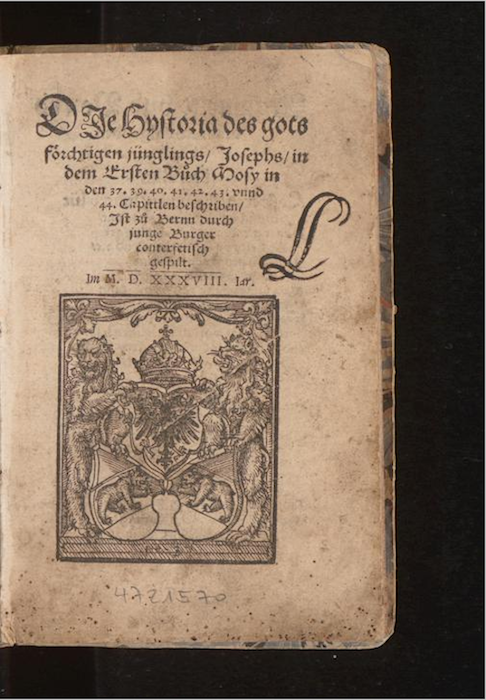 DIe Hystoria des gots
förchtigen jünglings/ Josephs/ in
dem Ersten Bůch Mosy in
den 37. 39. 40. 41. 42. 43. vnnd
44. Capittlen beschriben/
Ist zů Bernn durch
junge Burger
conterfetisch
gespilt.
Im M. D. XXXVIII. Iar.
4721570